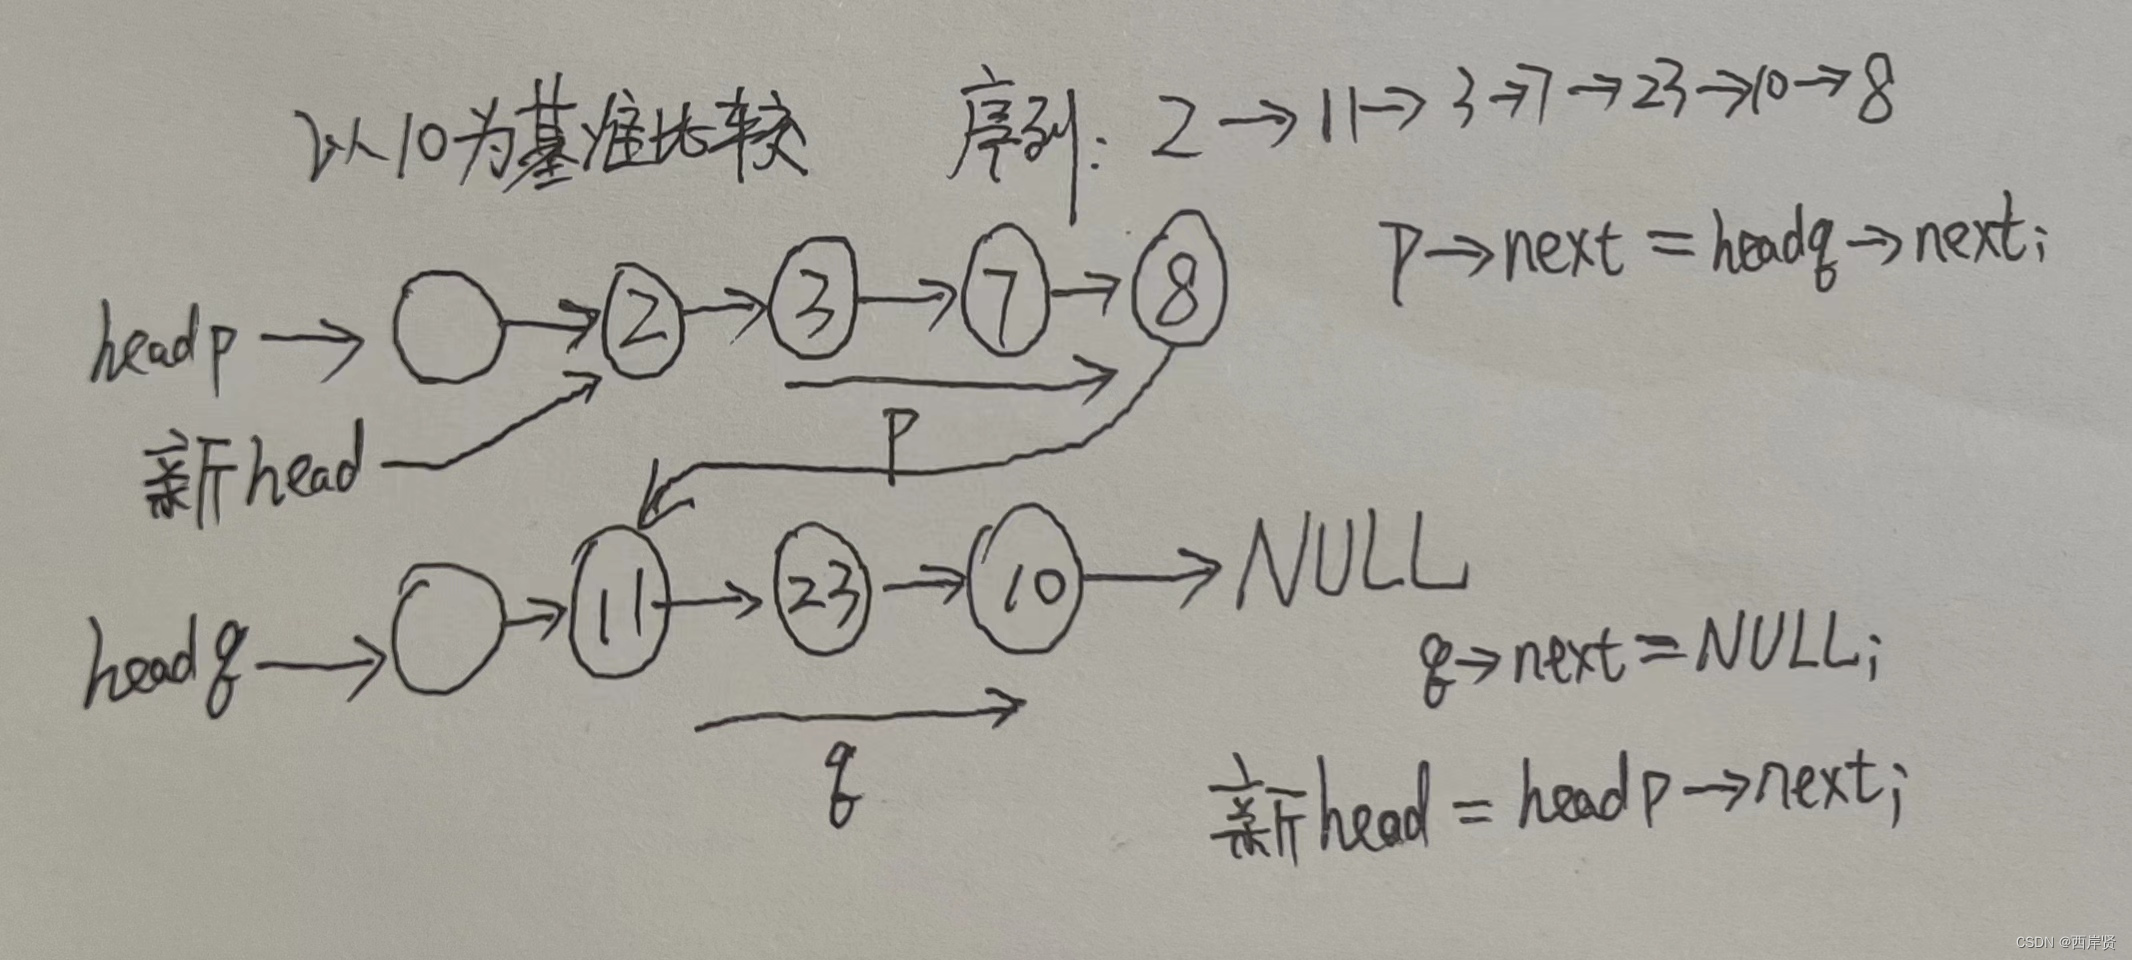 以10为基准比较 序列: 2→11→3→7→23→10→8
p→next = headq→next;
headp→ → 2 → 3 → 7 → 8
p
新head
headq→ → 11 → 23 → 10 → NULL
q→next=NULL;
q
新head = headp→next;
CSDN @西岸贤